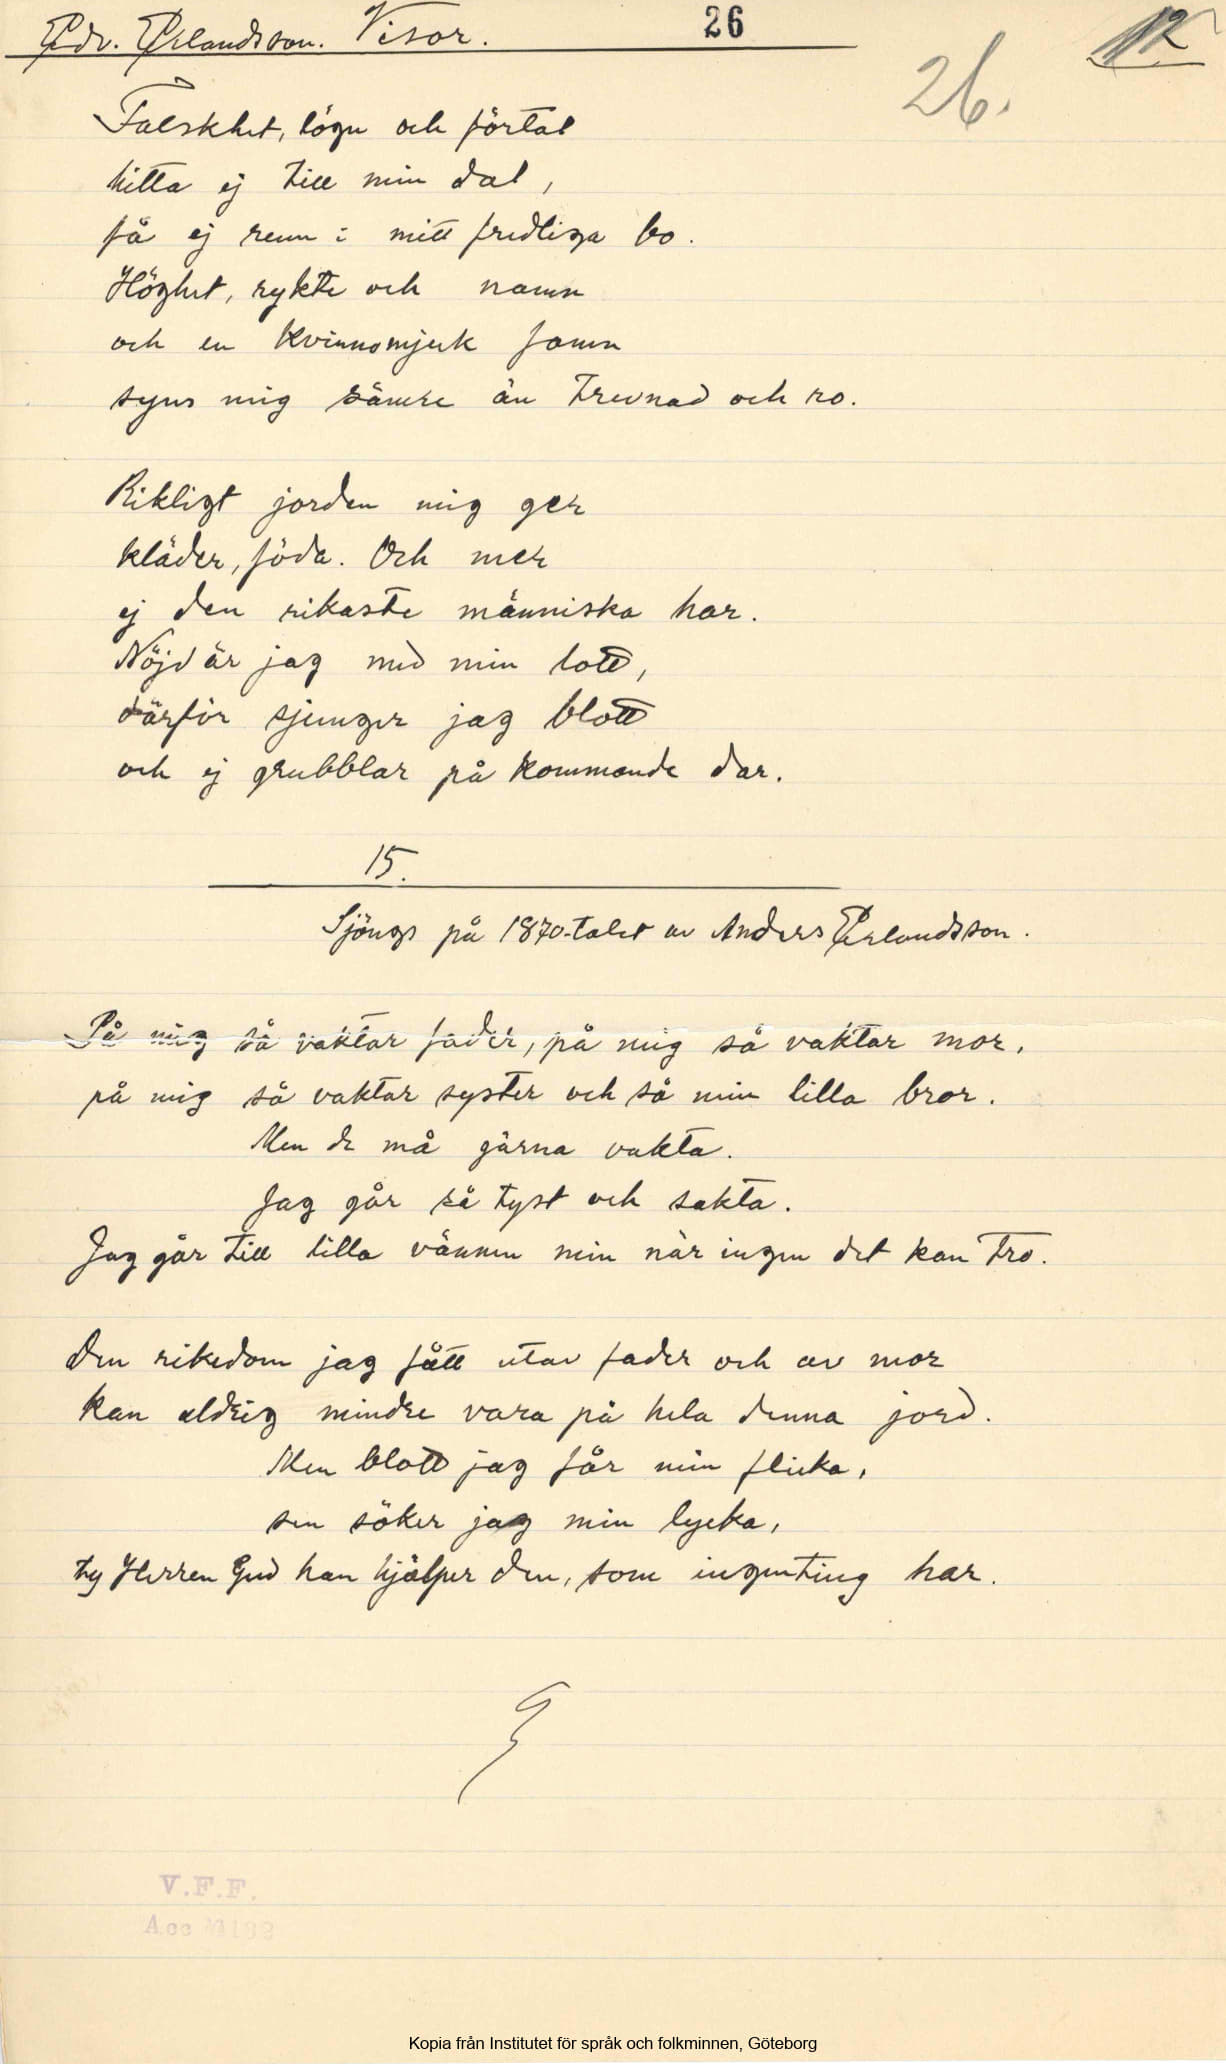 Edv. Erlandsson. Visor. 26
26.
12
Falskhet, lögn och förtal
hitta ej till min dal,
få ej rum i mitt fredliga bo.
Höghet, rykte och namn
och en kvinnomjuk famn
syns mig sämre än trevnad och ro.
Rikligt jorden mig ger
kläder, föda. Och mer
ej den rikaste människa har.
Nöjd är jag med min lott,
därför sjunger jag blott
och ej grubblar på kommande dar.
15.
Sjöngs på 1870-talet av Anders Erlandsson.
På mig så vaktar fader, på mig så vaktar mor,
på mig så vaktar syster och så min lilla bror.
Men de må gärna vakta.
Jag går så tyst och sakta.
Jag går till lilla vännen min när ingen det kan tro.
Den rikedom jag fått utav fader och av mor
kan aldrig mindre vara på hela denna jord.
Men blott jag får min flicka,
sen söker jag min lycka,
ty Herren Gud han hjälper den, som ingenting har.
V.F.F.
Acc
Kopia från Institutet för språk och folkminnen, Göteborg